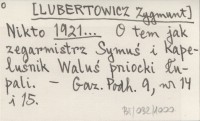 [LUBERTOWICZ Zygmunt]
Nikto 1921... O tem jak
zegarmistrz Symuś i Kape-
luśnik Waluś pniocki łu-
pali. — Gaz. Podh. 9, nr 14
i 15.